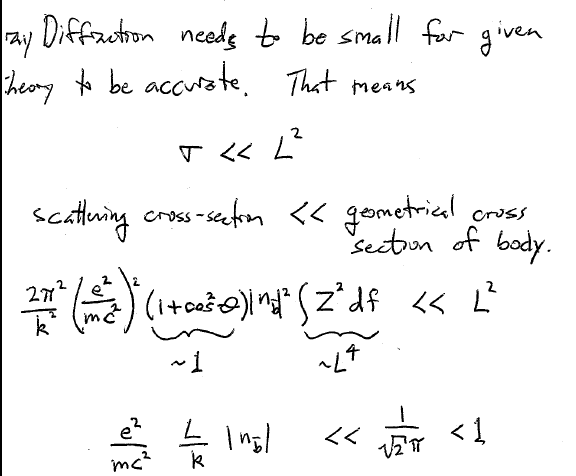 ray Diffraction needs to be small for given
theory to be accurate. That means
σ << L²
scattering cross-section << geometrical cross
section of body.
2π²/k² (e²/mc²)² (1+cos²θ)|n_b|² ∫ Z² df << L²
~1 ~L⁴
e²/mc² L/k |n_b| << 1/(√2 π) < 1